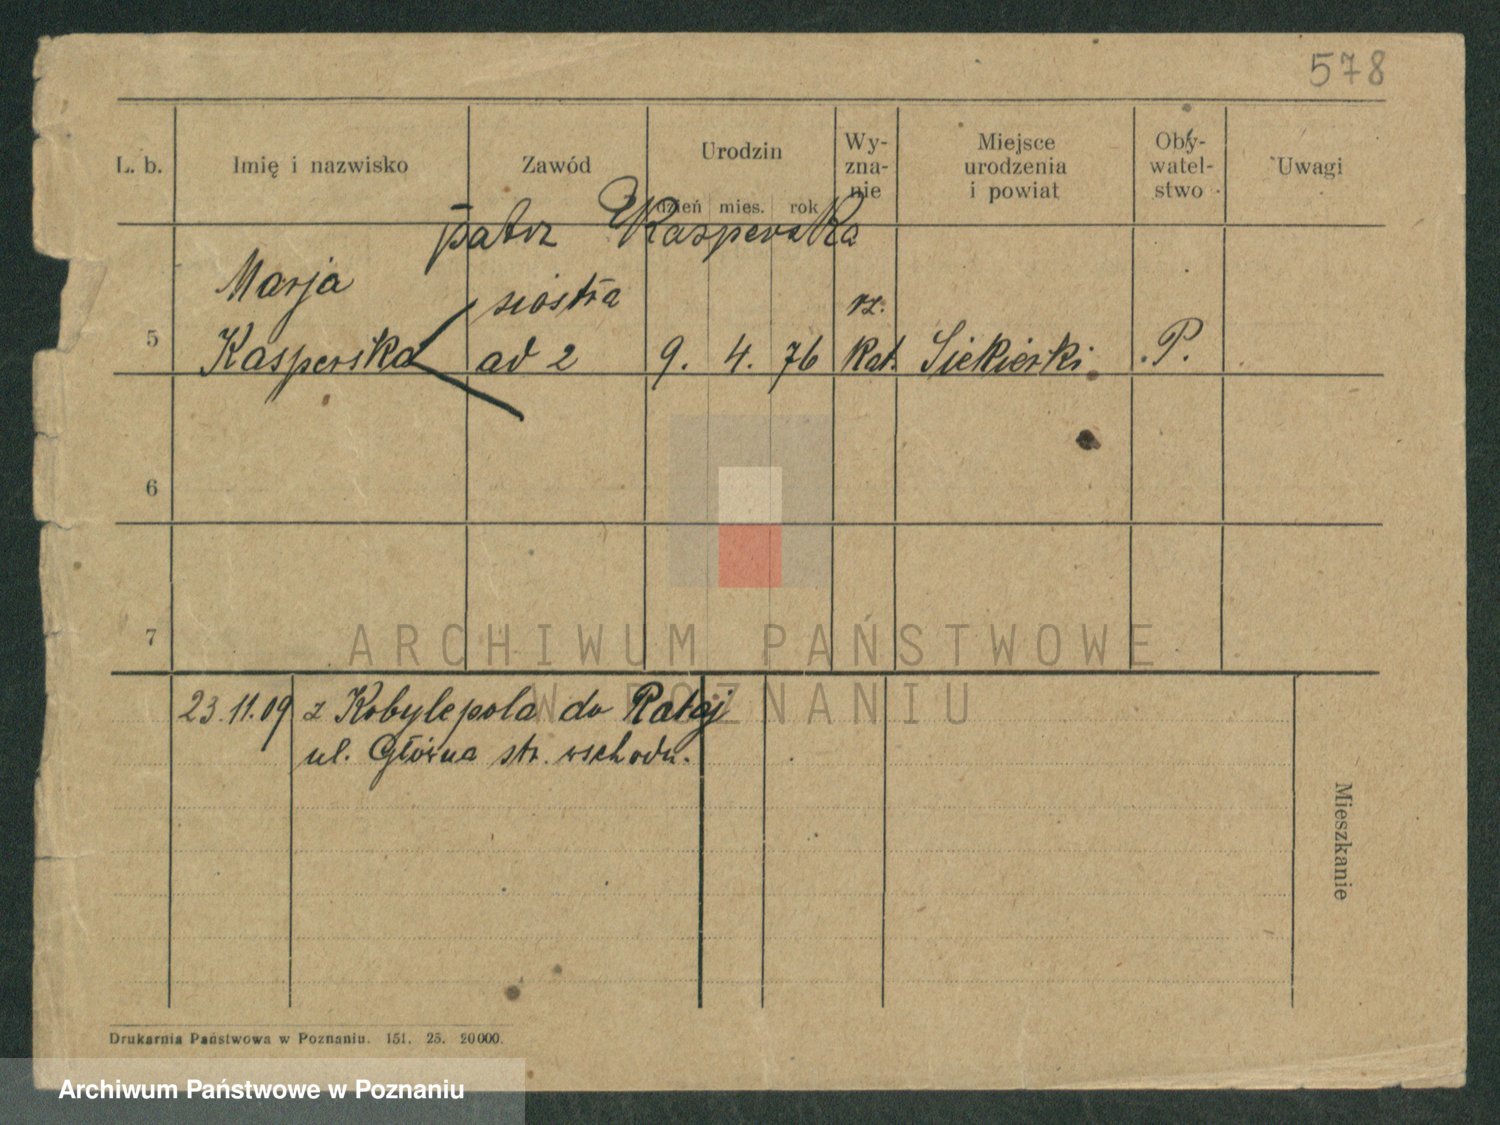 578
L. b. Imię i nazwisko Zawód Urodzin Wy-zna-nie Miejsce urodzenia i powiat Oby-watel-stwo Uwagi
dzień mies. rok
patrz Kasperska
Marja siostra rz.
5 Kasperska ad 2 9. 4. 76 kat. Siekierki P.
6
7
ARCHIWUM PAŃSTWOWE
W POZNANIU
23.11.09 z Kobylepola do Rataj
ul. Główna str. wschodn.
Mieszkanie
Drukarnia Państwowa w Poznaniu. 151. 25. 20000.
Archiwum Państwowe w Poznaniu